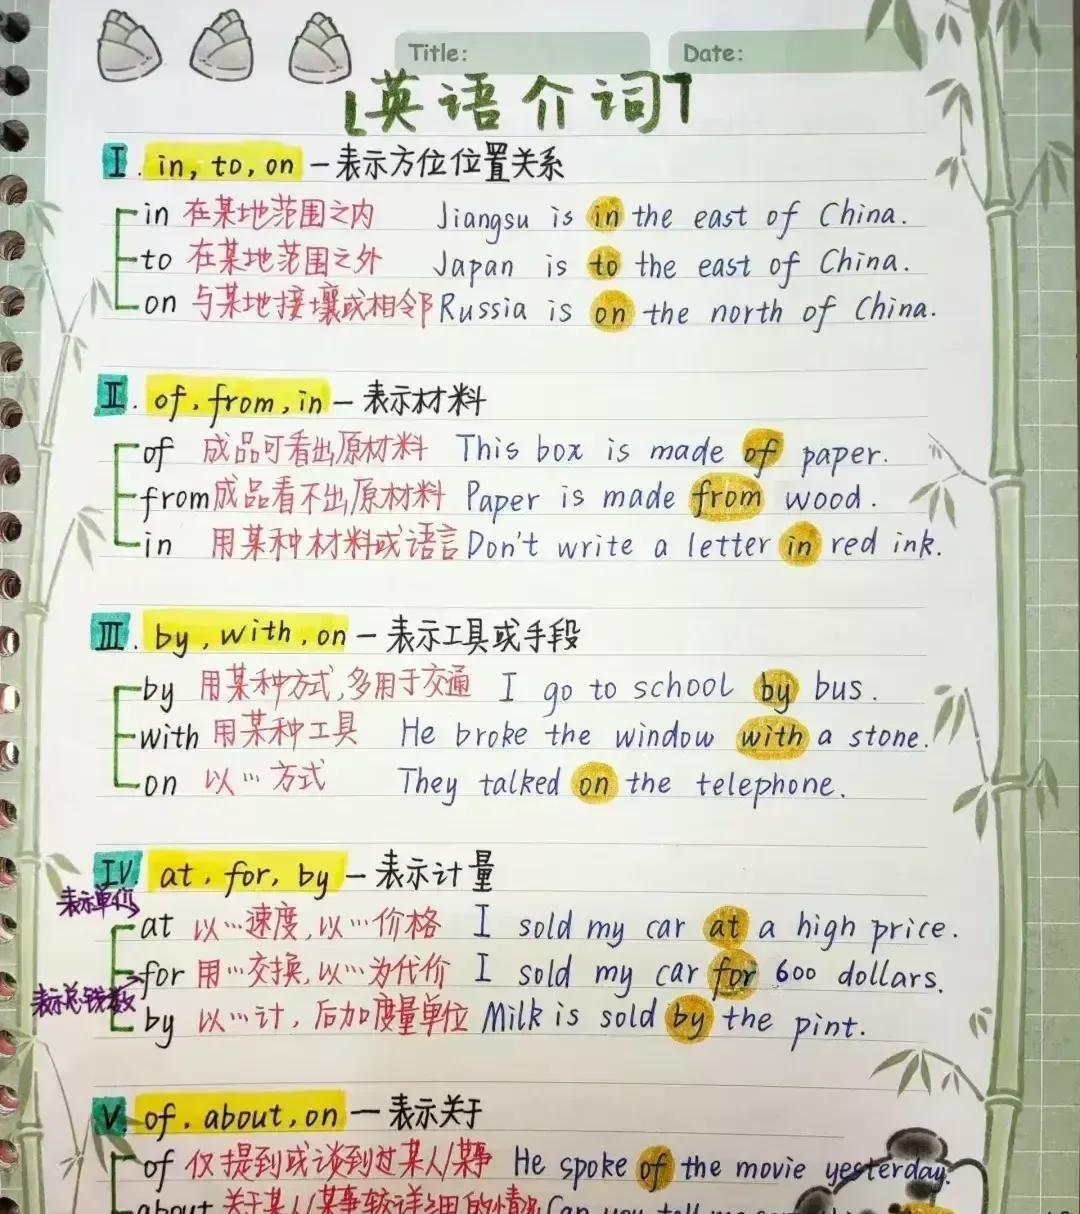 Title:
Date:
「英语介词」
I. in, to, on — 表示方位位置关系
in 在某地范围之内 Jiangsu is in the east of China.
to 在某地范围之外 Japan is to the east of China.
on 与某地接壤或相邻 Russia is on the north of China.
II. of, from, in — 表示材料
of 成品可看出原材料 This box is made of paper.
from 成品看不出原材料 Paper is made from wood.
in 用某种材料或语言 Don't write a letter in red ink.
III. by, with, on — 表示工具或手段
by 用某种方式,多用于交通 I go to school by bus.
with 用某种工具 He broke the window with a stone.
on 以…方式 They talked on the telephone.
IV. at, for, by — 表示计量
表示单价
at 以…速度,以…价格 I sold my car at a high price.
for 用…交换,以…为代价 I sold my car for 600 dollars.
表示总钱数
by 以…计,后加度量单位 Milk is sold by the pint.
V. of, about, on — 表示关于
of 仅提到或谈到过某人/某事 He spoke of the movie yesterday.
about 关于某人/某事较详细的情况 Can you tell me